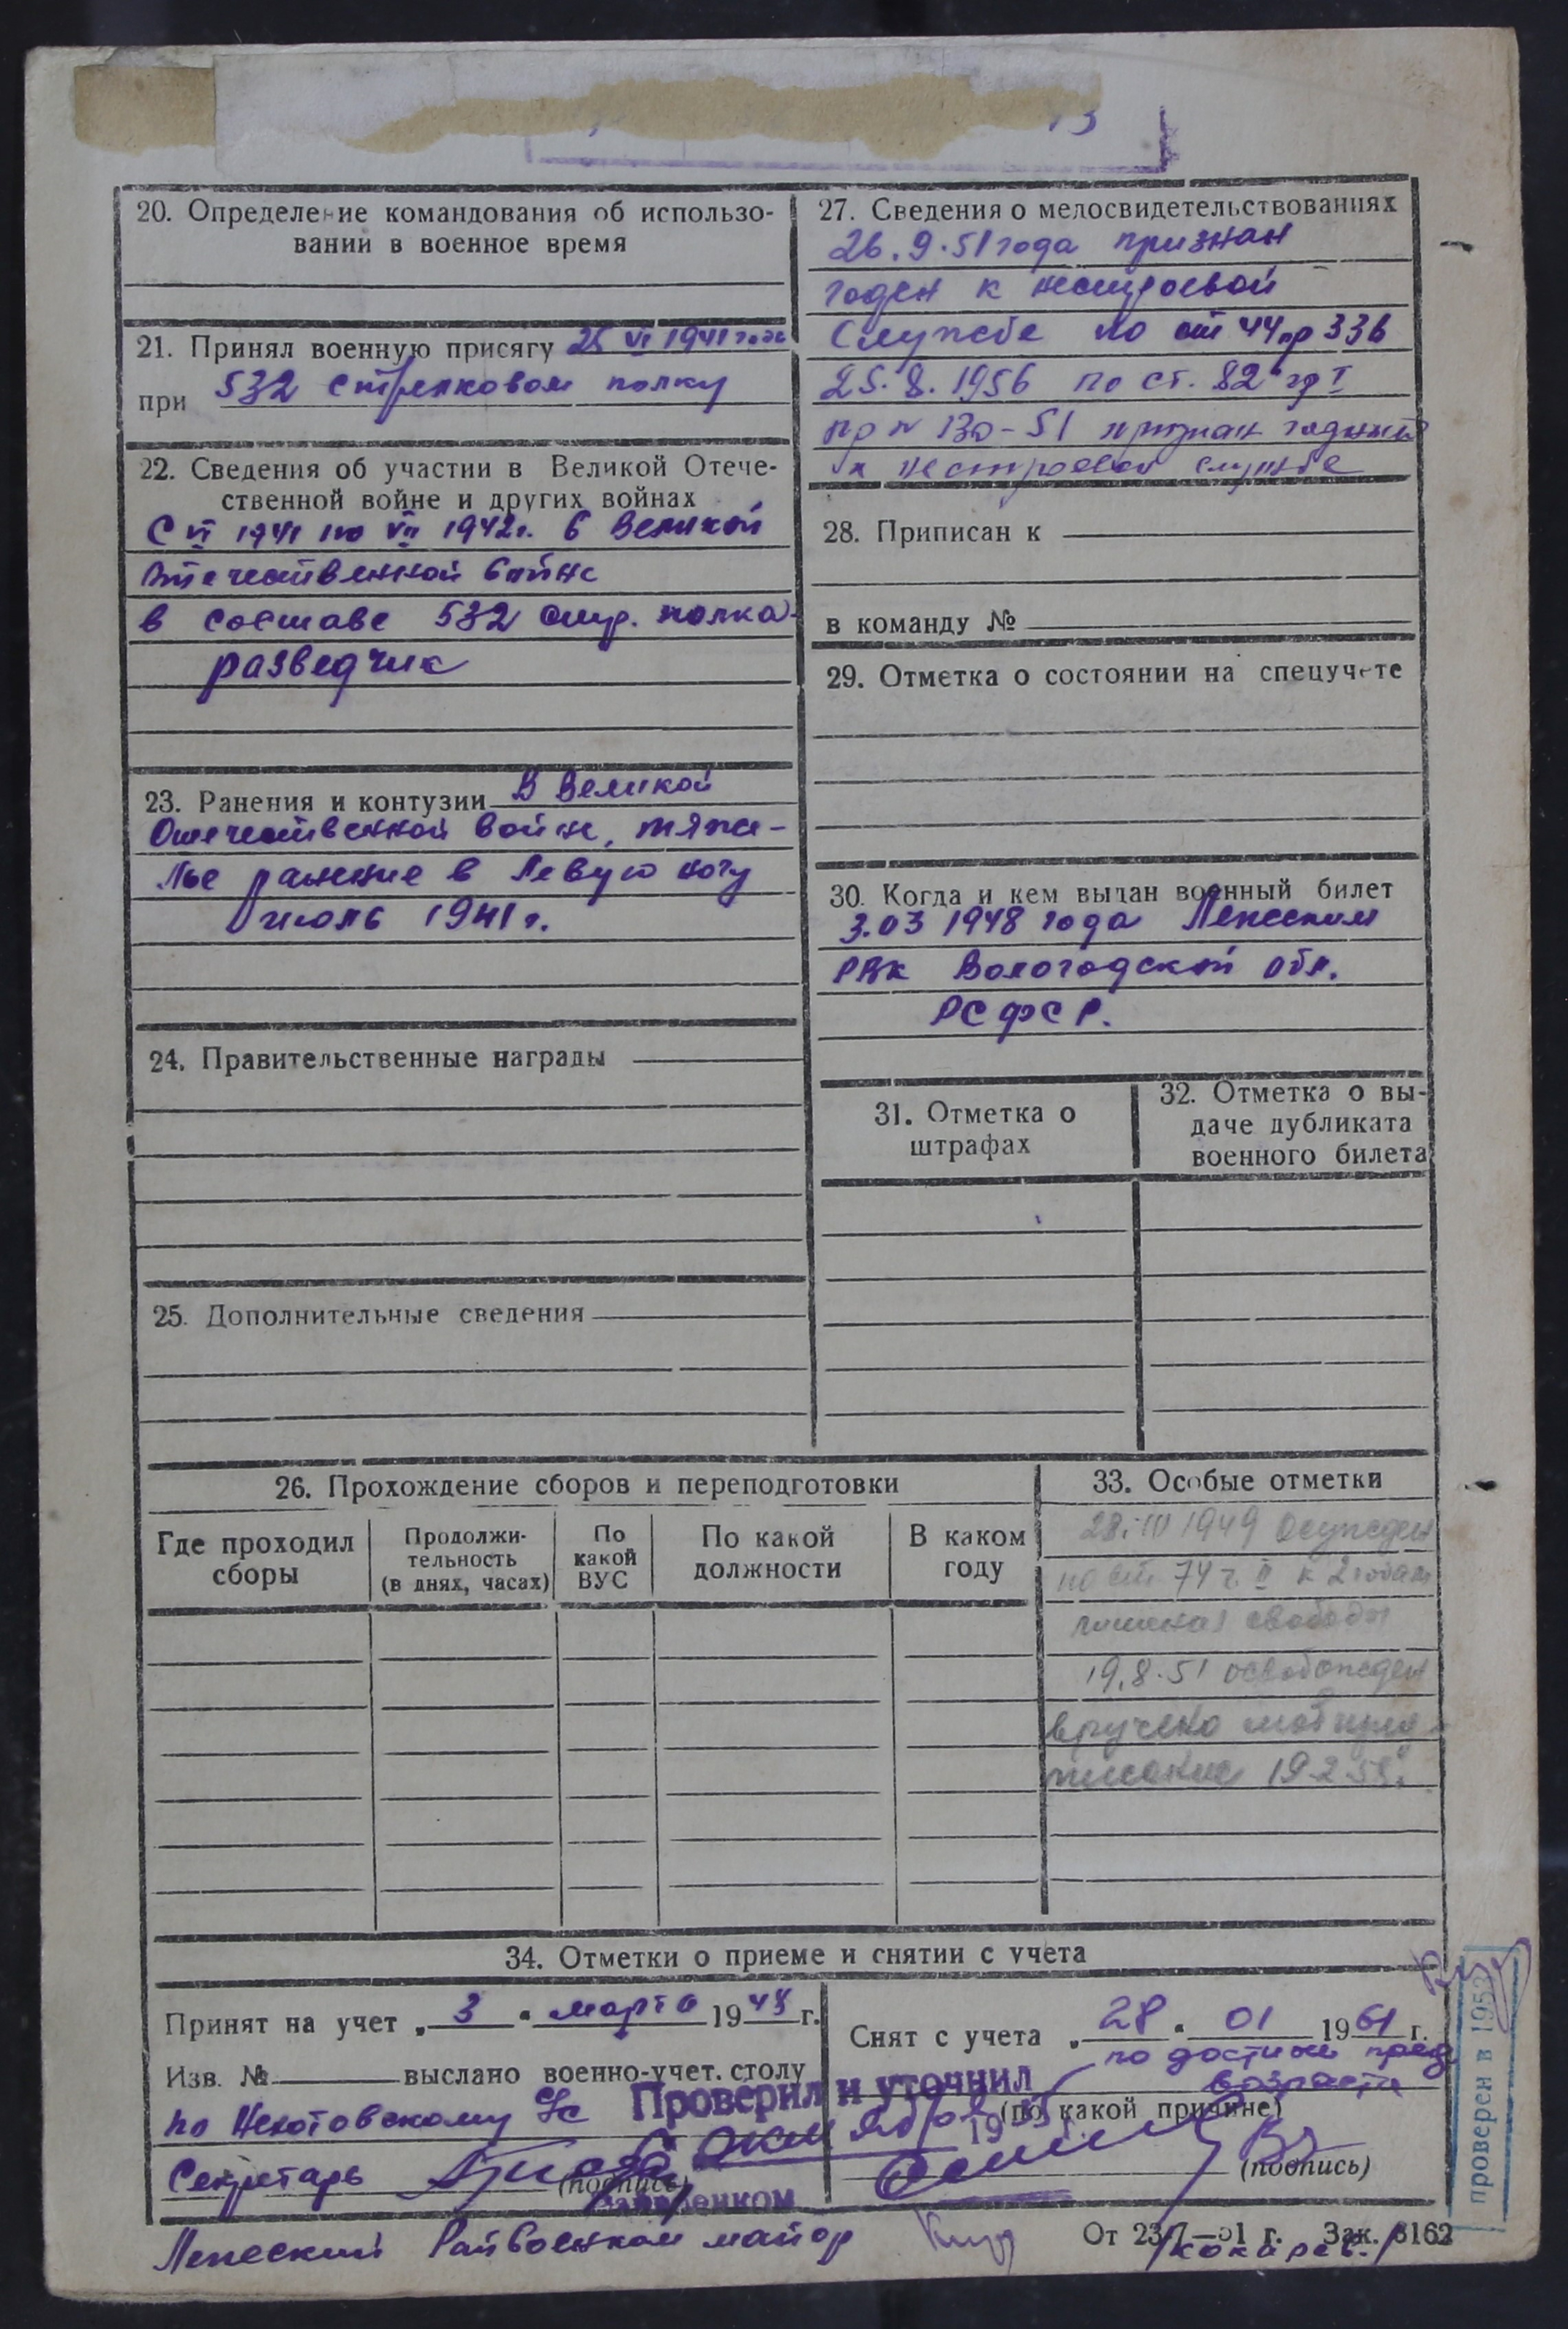 20. Определение командования об использо-
вании в военное время
21. Принял военную присягу 25 VI 1941 года
при 532 стрелковом полку
22. Сведения об участии в Великой Отече-
ственной войне и других войнах
С VI 1941 по VII 1942г. в Великой
Отечественной войне
в составе 532 стр. полка
разведчик
23. Ранения и контузии В Великой
Отечественной войне, тяже-
лое ранение в левую ногу
июль 1941 г.
24. Правительственные награды
25. Дополнительные сведения
27. Сведения о медосвидетельствованиях
26.9.51 года признан
годен к нестроевой
службе по ст 44 пр 336
25.8.1956 по ст. 82 гр I
пр N 130-51 признан годным
к нестроевой службе
28. Приписан к
в команду №
29. Отметка о состоянии на спецучете
30. Когда и кем выдан военный билет
3.03 1948 года Лежским
РВК Вологодской обл.
РСФСР.
31. Отметка о
штрафах
32. Отметка о вы-
даче дубликата
военного билета
26. Прохождение сборов и переподготовки
Где проходил
сборы
Продолжи-
тельность
(в днях, часах)
По
какой
ВУС
По какой
должности
В каком
году
33. Особые отметки
28.III 1949 Осужден
по ст 74 ч II к 2 годам
лишения свободы
19.8.51 освобожден
вручено моб пред-
писание
34. Отметки о приеме и снятии с учета
Принят на учет „ 3 " марта 1948 г.
Изв. № выслано военно-учет. столу
по
Секретарь
(подпись)
Снят с учета „ 28 " 01 1961 г.
по достиж пред
возраста
(по какой причине)
(подпись)
Проверил и уточнил
19
Райвоенком
Лежский Райвоенком майор
/Кокарев./
От 23/7—51 г. Зак. 3162
проверен в 1953